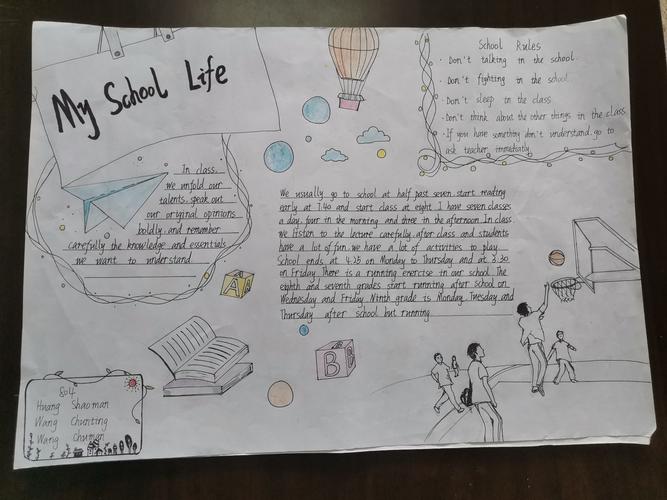 My School Life
School Rules
· Don't talking in the school.
· Don't fighting in the school.
· Don't sleep in the class
· Don't think about the other things in the class
· If you have something don't understand. go to
ask teacher immediatily.
In class,
we unfold our
talents. speak out
our original opinions
boldly. and remember
carefully the knowledge and essentials
we want to understand
We usually go to school at half past seven. start reading
early at 7.40 and start class at eight. I have seven classes
a day. four in the morning and three in the afternoon. In class
we listen to the lecture carefully. after class and students
have a lot of fun. we have a lot of activities to play
School ends at 4.25 on Monday to Thursday. and at 3.30
on Friday. There is a running enercise in our school. The
eighth and seventh grades start running after school on
Wednesday and Friday. Ninth grade is Monday. Tuesday and
Thursday after school but running
A
B
804
Huang Shaoman
Wang Chunting
Wang